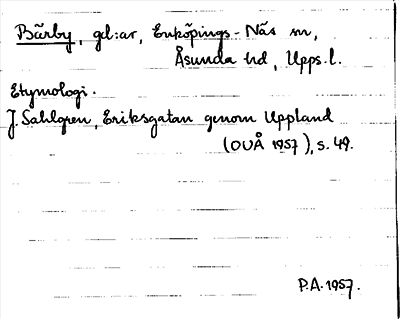 Bärby, gl:ar, Enköpings-Näs sn,
Åsunda hd, Upps.l.
Etymologi.
J. Sahlgren, Eriksgatan genom Uppland
(OUÅ 1957), s. 49.
P.A. 1957.